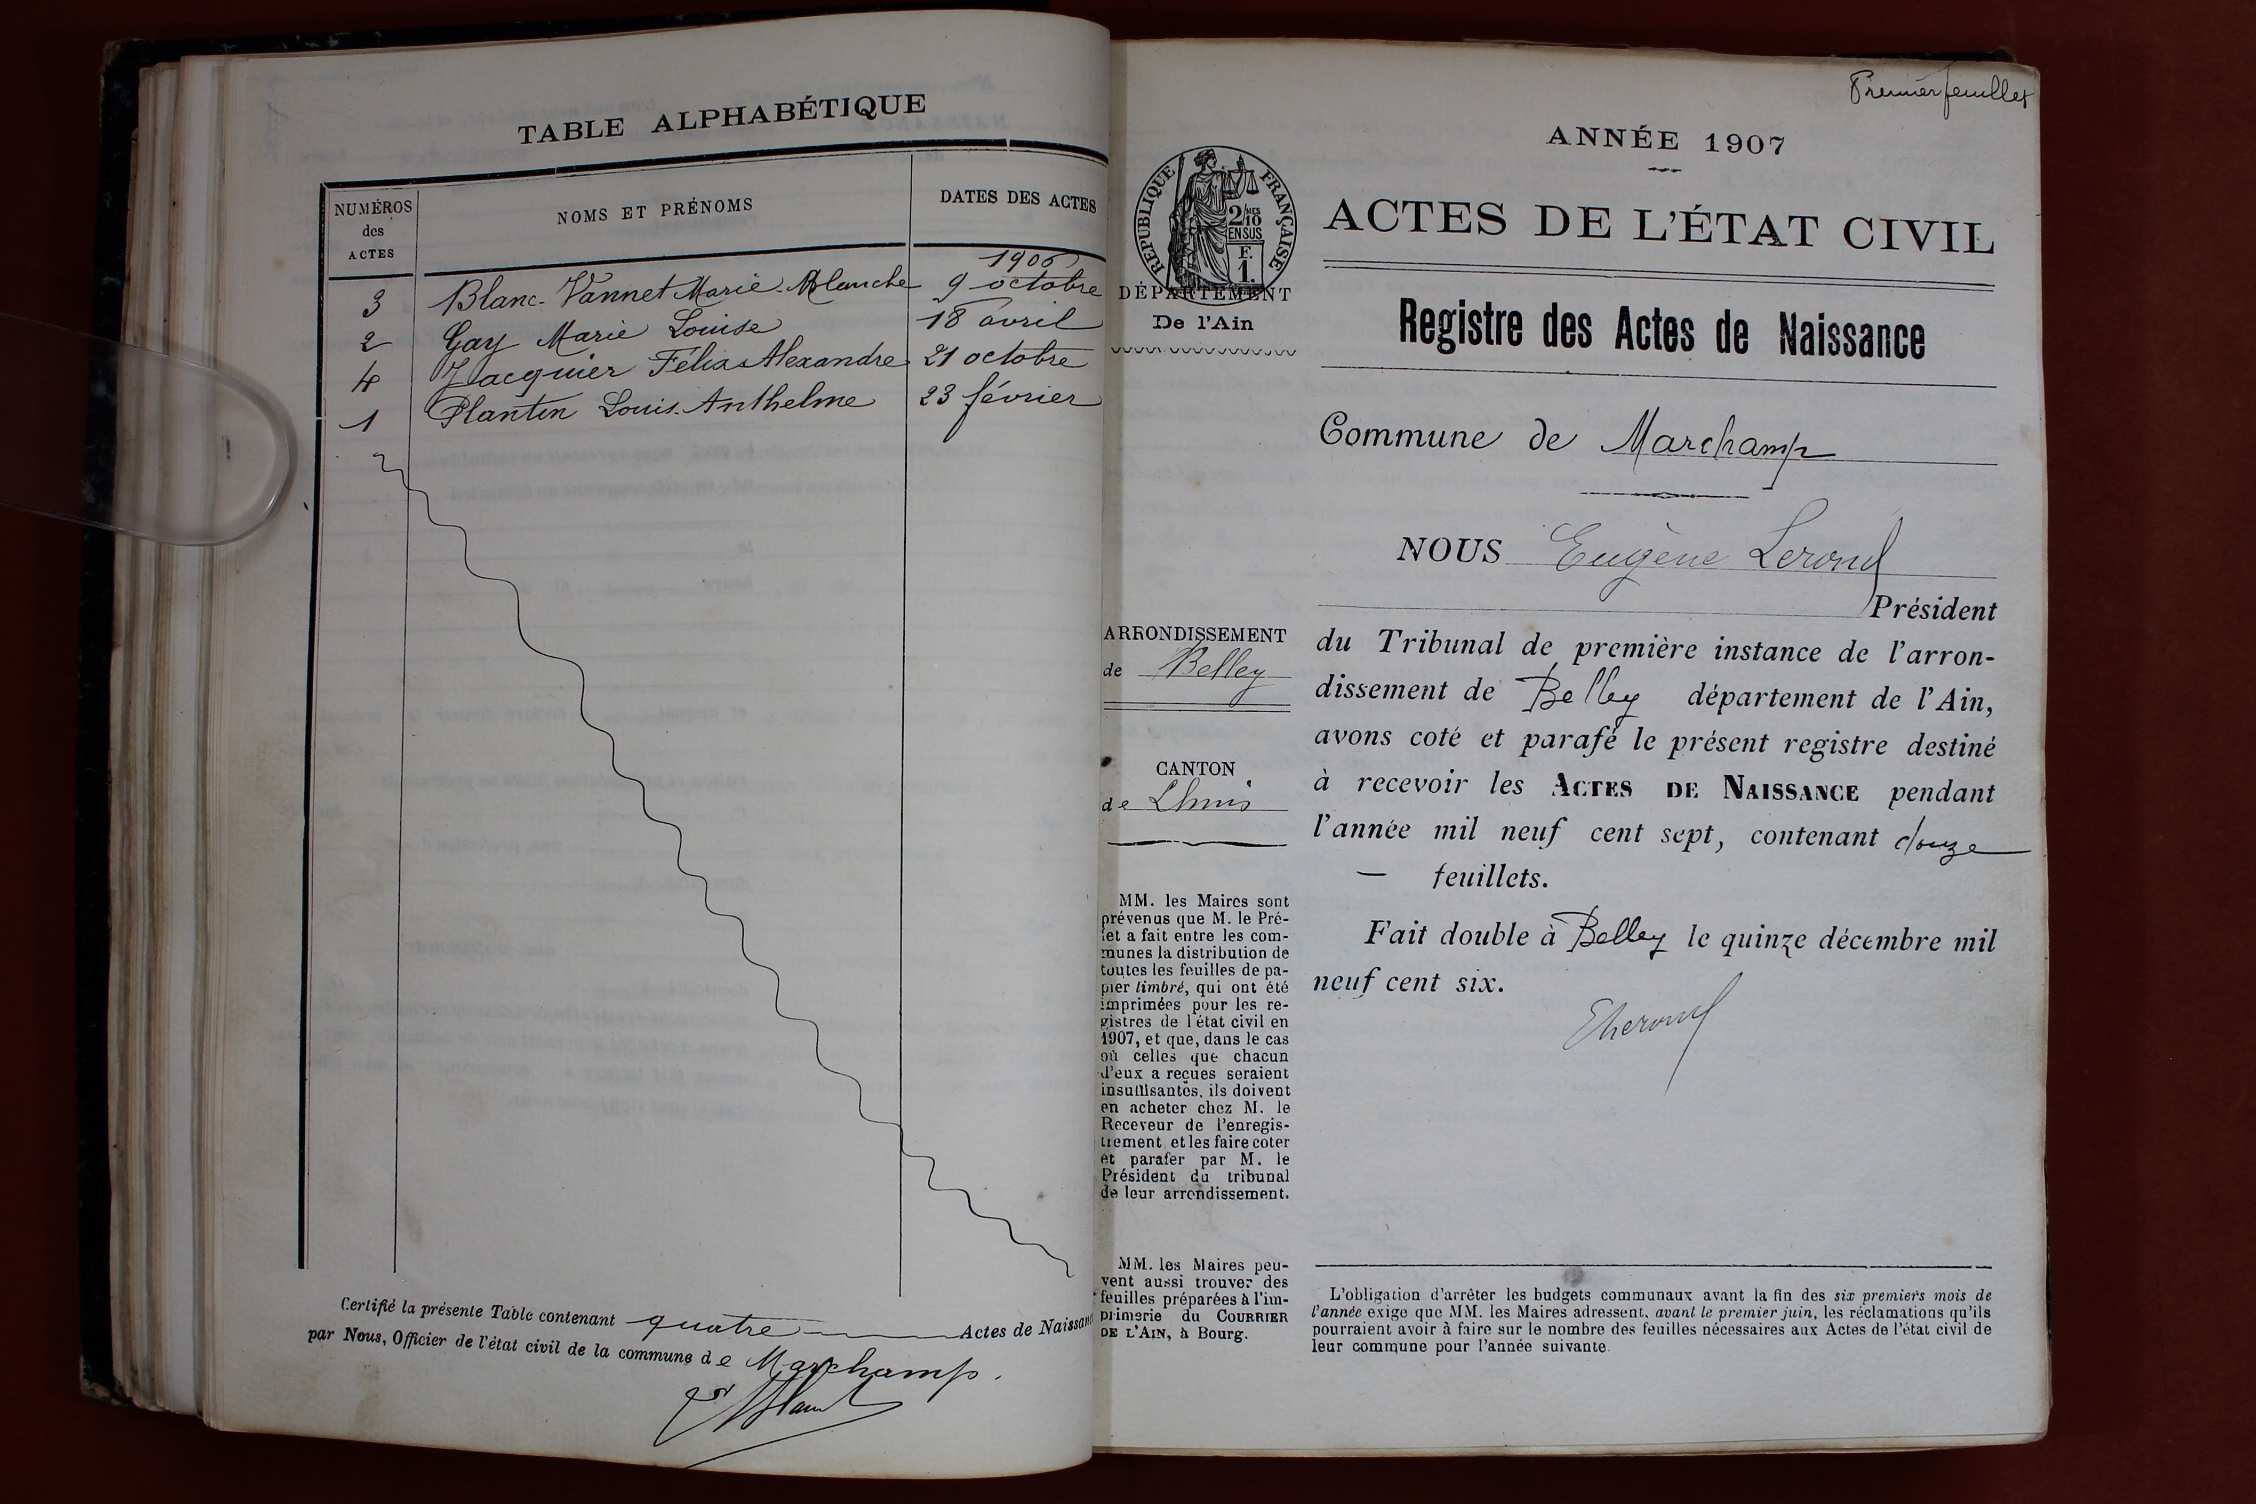 TABLE ALPHABÉTIQUE
NUMÉROS
des
ACTES
NOMS ET PRÉNOMS
DATES DES ACTES
1906
3 Blanc-Vannet Marie-Blanche 9 octobre
2 Gay Marie Louise 18 avril
4 Jacquier Félix Alexandre 21 octobre
1 Plantin Louis-Anthelme 23 février
Certifié la présente Table contenant quatre Actes de Naissanc
par Nous, Officier de l'état civil de la commune de Marchamp.
Premier feuillet
ANNÉE 1907
RÉPUBLIQUE FRANÇAISE
2/10 MES
EN SUS
F.
1.
ACTES DE L'ÉTAT CIVIL
DÉPARTEMENT
De l'Ain
Registre des Actes de Naissance
Commune de Marchamp
NOUS Eugène Lerond
Président
du Tribunal de première instance de l'arron-
dissement de Belley département de l'Ain,
avons coté et parafé le présent registre destiné
à recevoir les ACTES DE NAISSANCE pendant
l'année mil neuf cent sept, contenant douze
— feuillets.
Fait double à Belley le quinze décembre mil
neuf cent six.
ARRONDISSEMENT
de Belley
CANTON
de Lhuis
MM. les Maires sont
prévenus que M. le Pré-
fet a fait entre les com-
munes la distribution de
toutes les feuilles de pa-
pier timbré, qui ont été
imprimées pour les re-
gistres de l'état civil en
1907, et que, dans le cas
où celles que chacun
d'eux a reçues seraient
insuffisantes, ils doivent
en acheter chez M. le
Receveur de l'enregis-
trement et les faire coter
et parafer par M. le
Président du tribunal
de leur arrondissement.
MM. les Maires peu-
vent aussi trouver des
feuilles préparées à l'im-
primerie du COURRIER
DE L'AIN, à Bourg.
L'obligation d'arrêter les budgets communaux avant la fin des six premiers mois de
l'année exige que MM. les Maires adressent, avant le premier juin, les réclamations qu'ils
pourraient avoir à faire sur le nombre des feuilles nécessaires aux Actes de l'état civil de
leur commune pour l'année suivante.